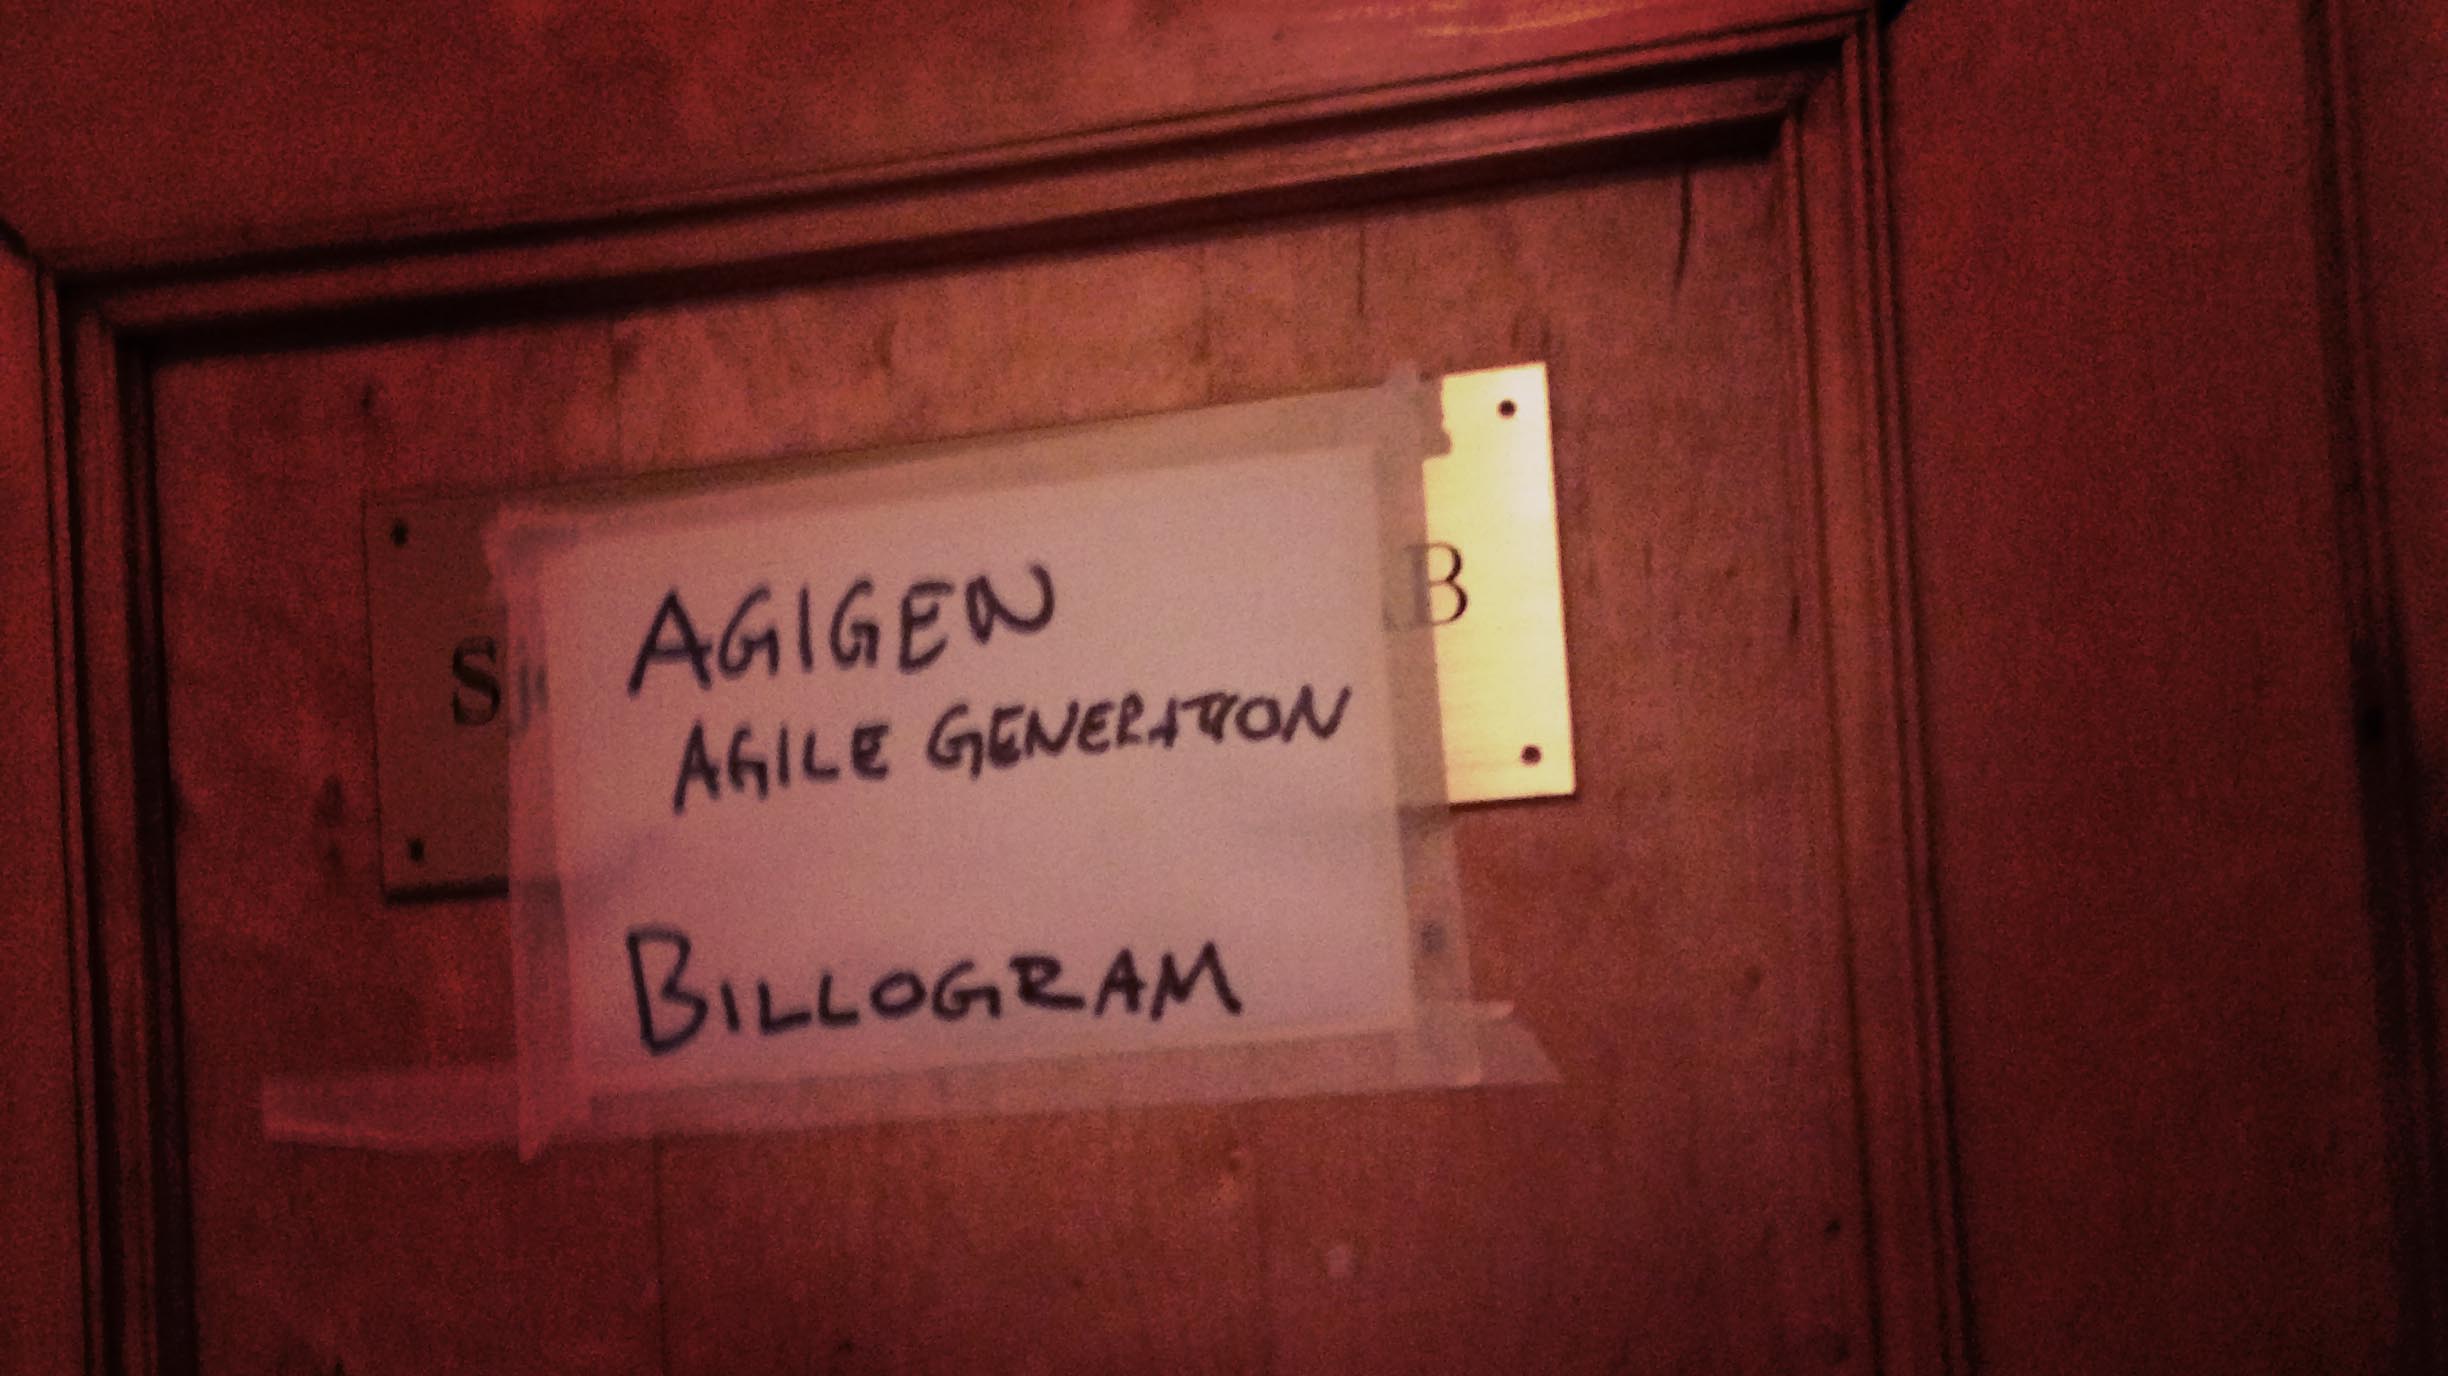 AGIGEN
AGILE GENERATION
BILLOGRAM